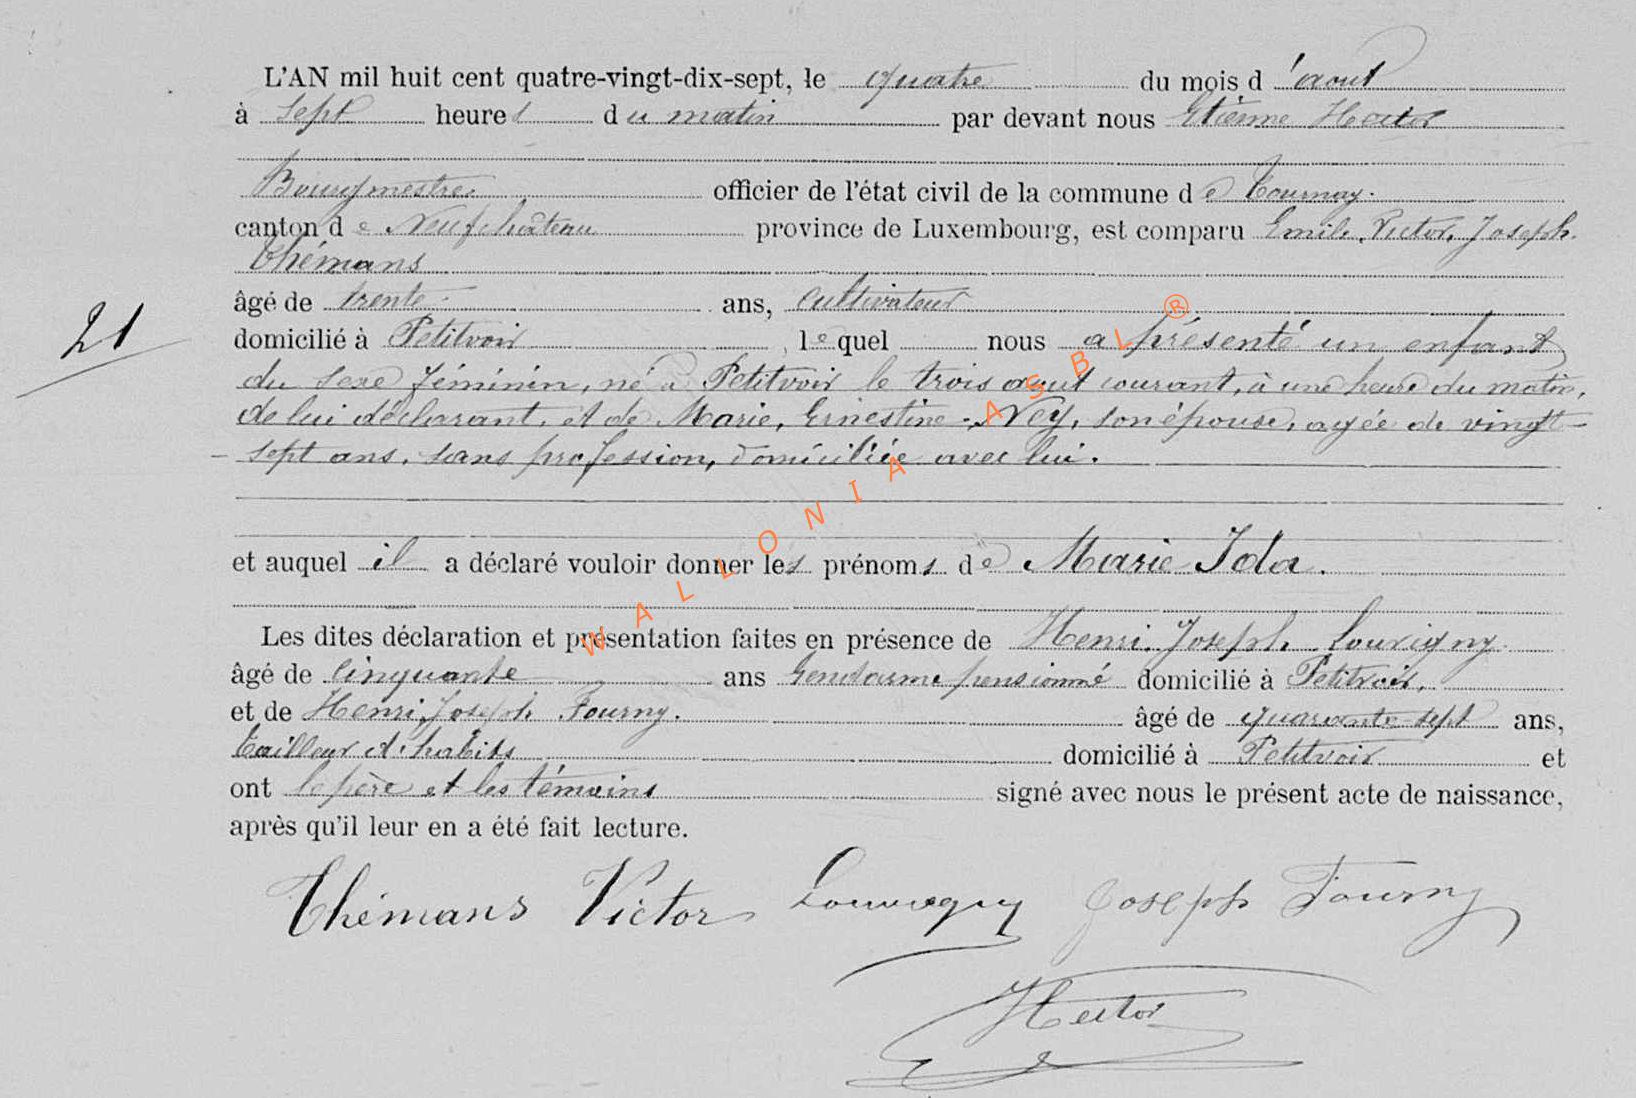 L'AN mil huit cent quatre-vingt-dix-sept, le quatre du mois d'aout
à sept heures du matin par devant nous Etienne Hector
Bourgmestre officier de l'état civil de la commune de Tournay.
canton de Neufchâteau province de Luxembourg, est comparu Emile, Victor, Joseph
Thémans
âgé de trente ans, cultivateur
domicilié à Petitvoir, lequel nous a présenté un enfant
21
du sexe féminin, né à Petitvoir le trois aout courant, à une heure du matin,
de lui déclarant, et de Marie, Ernestine Ney, son épouse, agée de vingt-
- sept ans, sans profession, domiciliée avec lui.
et auquel il a déclaré vouloir donner les prénoms de Marie Ida.
Les dites déclaration et présentation faites en présence de Henri, Joseph Louvigny
âgé de cinquante ans Gendarme pensionné domicilié à Petitvoir,
et de Henri, Joseph Fourny. âgé de quarante-sept ans,
tailleur d'habits domicilié à Petitvoir et
ont le père et les témoins signé avec nous le présent acte de naissance,
après qu'il leur en a été fait lecture.
Thémans Victor Louvigny Joseph Fourny
Hector
WALLONIA ASBL ®